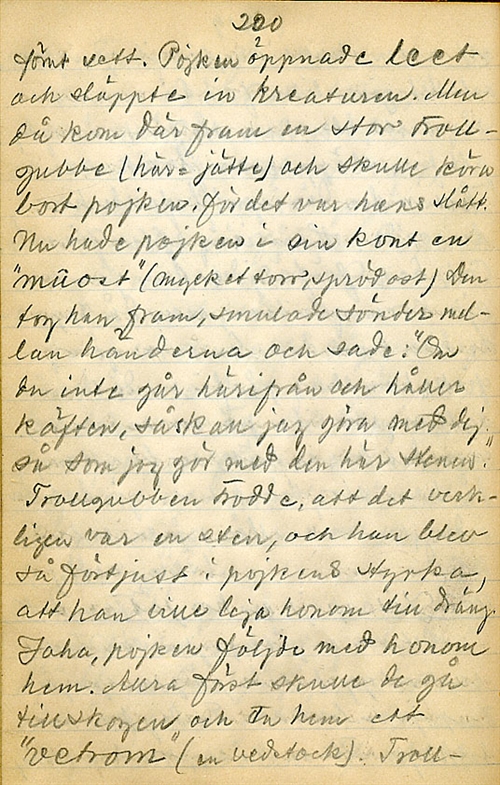 220
förut sett. Pojken öppnade leet
och släppte in kreaturen. Men
då kom där fram en stor troll-
gubbe (här = jätte) och skulle köra
bort pojken, för det var hans slått.
Nu hade pojken i sin kont en
"muost" (mycket torr, spröd ost) Den
tog han fram, smulade sönder mel-
lan händerna och sade: "Om
du inte går härifrån och håller
käften, så skall jag göra med dig,
så som jag gör med den här stenen."
Trollgubben trodde, att det verk-
ligen var en sten, och han blev
så förtjust i pojkens styrka,
att han ville lega honom till dräng.
Jaha, pojken följde med honom
hem. Men först skulle de gå
till skogen och ta hem ett
"vetrom" (en vedstock). Troll-